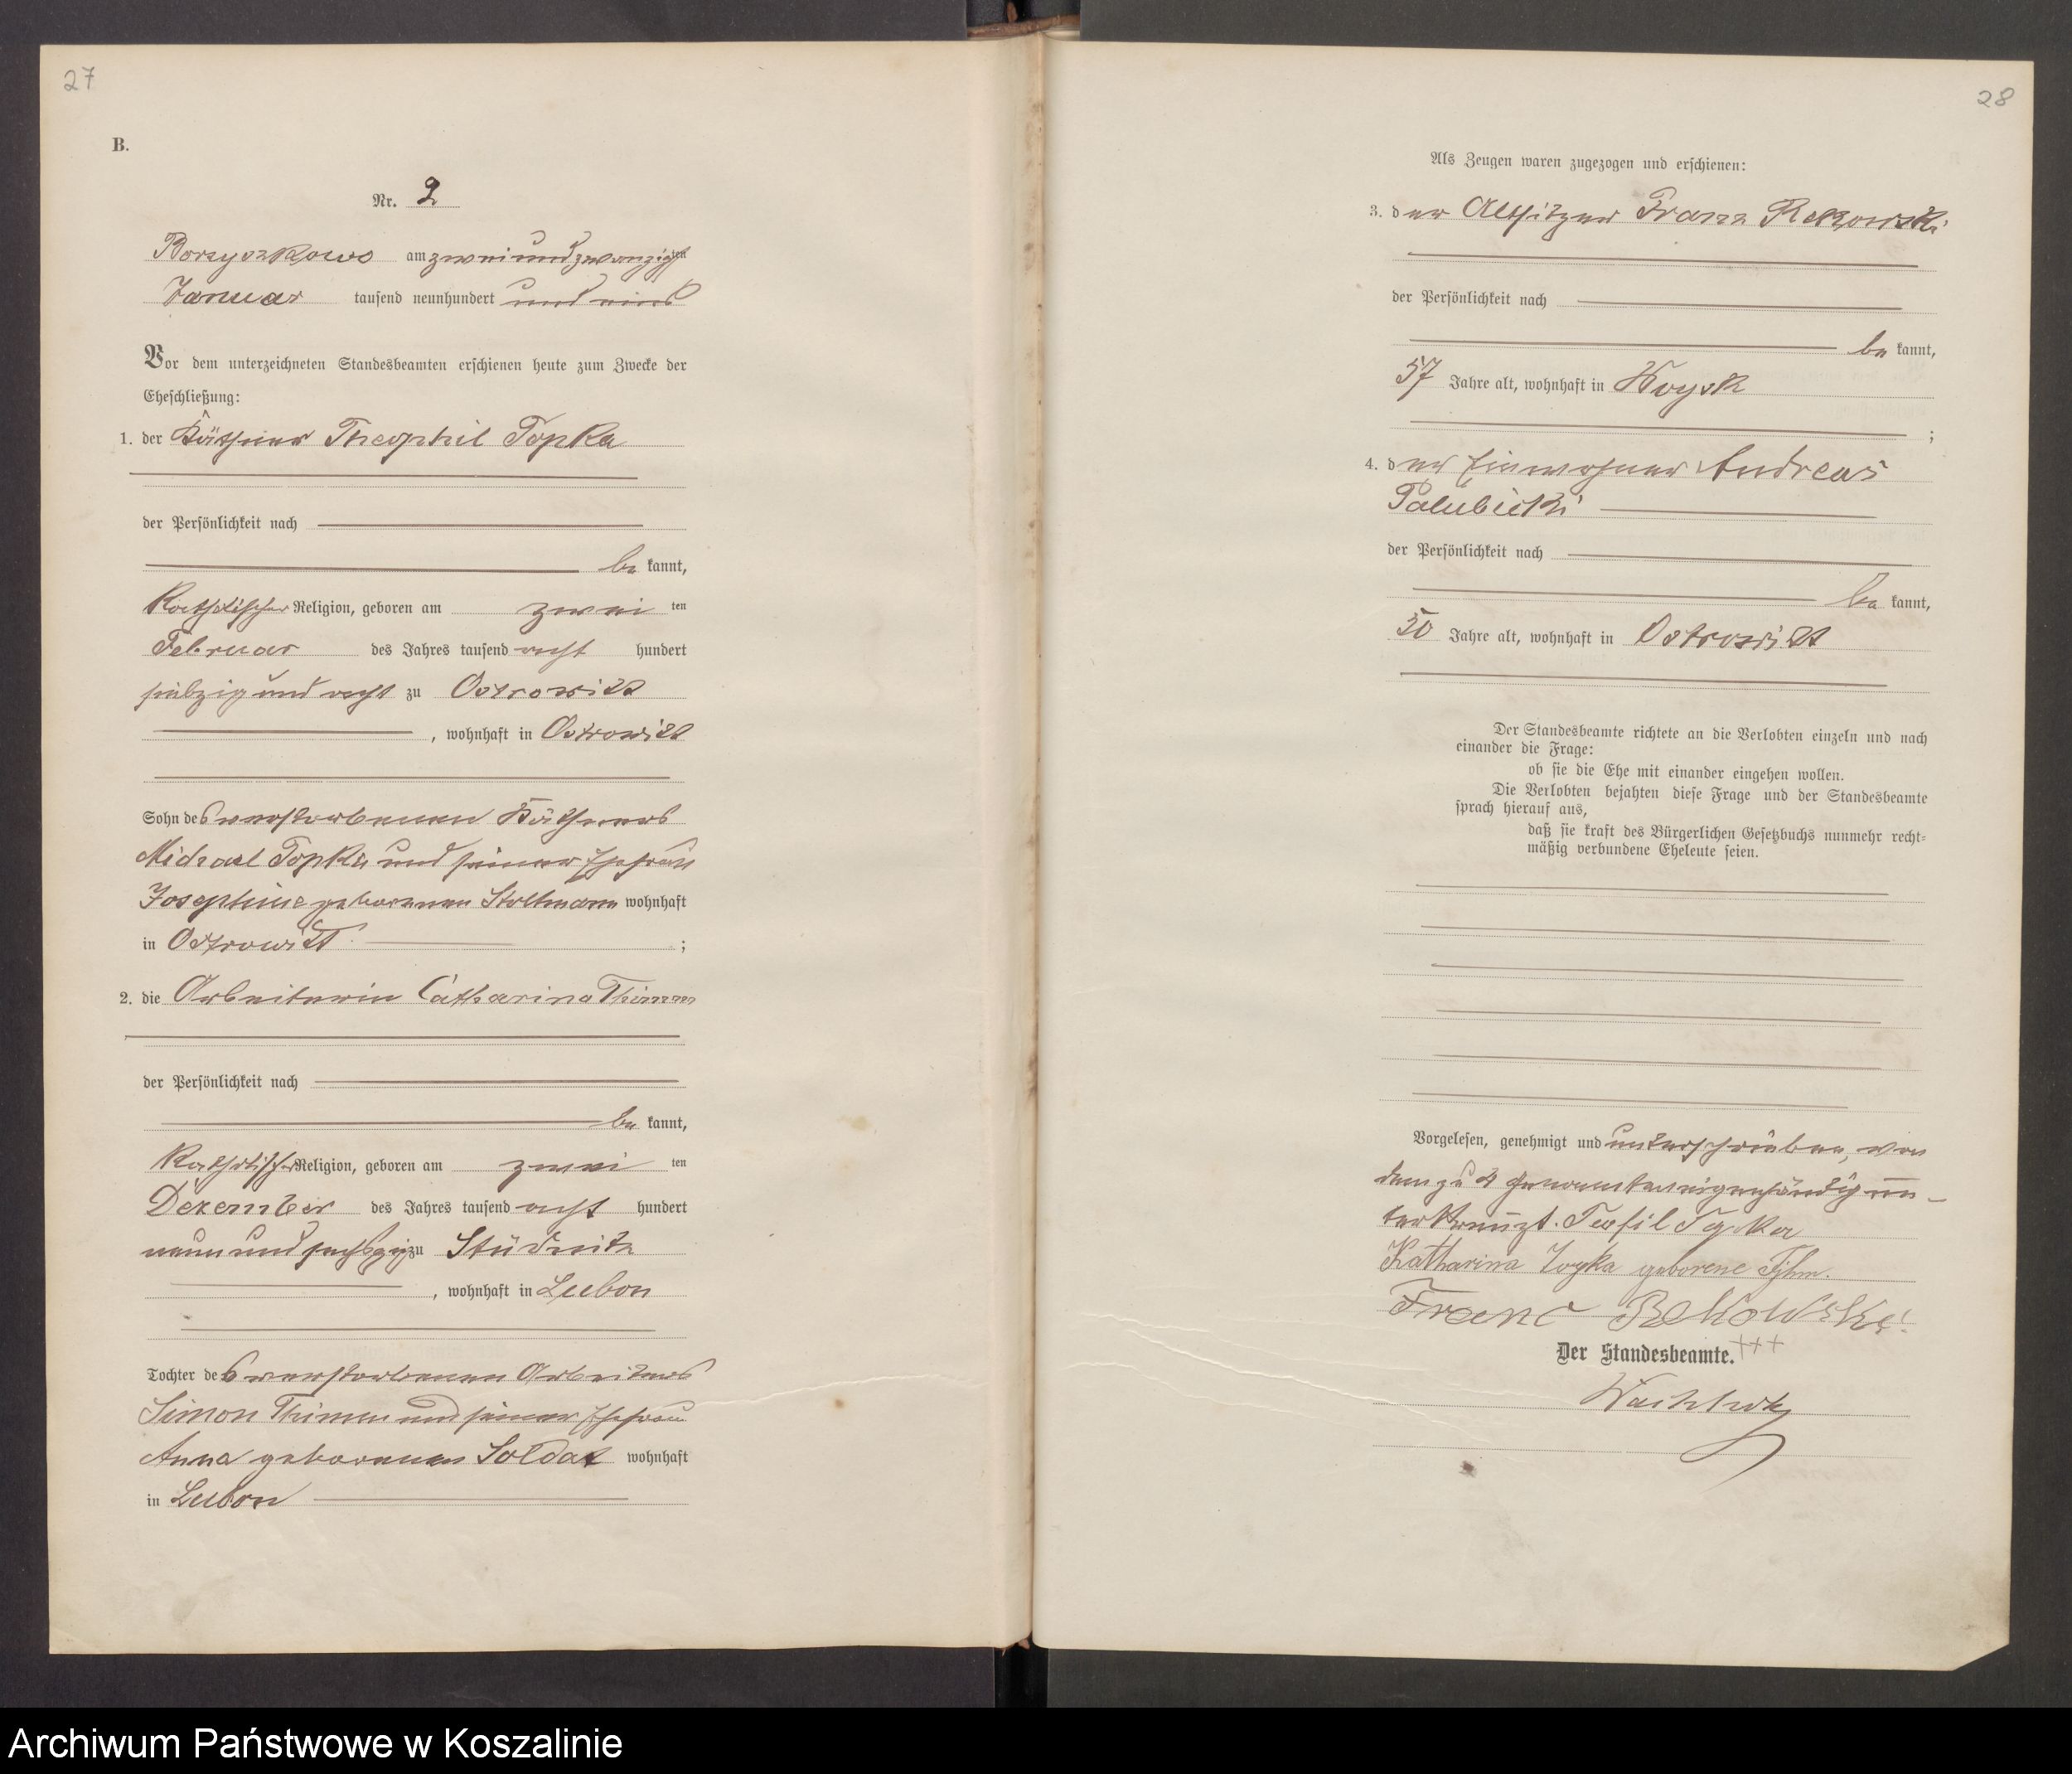 27
B.
Nr. 2
Borzyszkowo am zweiundzwanzigsten
Januar tausend neunhundert und eins
Vor dem unterzeichneten Standesbeamten erschienen heute zum Zwecke der
Eheschließung:
1. der Käthner Theophil Topka
der Persönlichkeit nach
be kannt,
katholischer Religion, geboren am zwei ten
Februar des Jahres tausend acht hundert
siebzig und acht zu Ostrowitt
, wohnhaft in Ostrowitt
Sohn des verstorbenen Käthners
Michael Topka und seiner Ehefrau
Josephine geborenen Stoltmann wohnhaft
in Ostrowitt ;
2. die Arbeiterin Catharina Thimm
der Persönlichkeit nach
be kannt,
katholischer Religion, geboren am zwei ten
Dezember des Jahres tausend acht hundert
neun und sechszig zu Stüdnitz
, wohnhaft in Lubon
Tochter des verstorbenen Arbeiters
Simon Thimm und seiner Ehefrau
Anna geborenen Soldat wohnhaft
in Lubon
28
Als Zeugen waren zugezogen und erschienen:
3. der Altsitzer Franz Rekowski
der Persönlichkeit nach
be kannt,
57 Jahre alt, wohnhaft in Woysk
;
4. der Einwohner Andreas
Palubicki
der Persönlichkeit nach
be kannt,
50 Jahre alt, wohnhaft in Ostrowitt
Der Standesbeamte richtete an die Verlobten einzeln und nach
einander die Frage:
ob sie die Ehe mit einander eingehen wollen.
Die Verlobten bejahten diese Frage und der Standesbeamte
sprach hierauf aus,
daß sie kraft des Bürgerlichen Gesetzbuchs nunmehr recht-
mäßig verbundene Eheleute seien.
Vorgelesen, genehmigt und unterschrieben, von
dem zu 4 Genannten eigenhändig un-
terkreuzt. Teofil Topka
Katharina Topka geborene
Franc Rekowski
Der Standesbeamte. +++
Archiwum Państwowe w Koszalinie